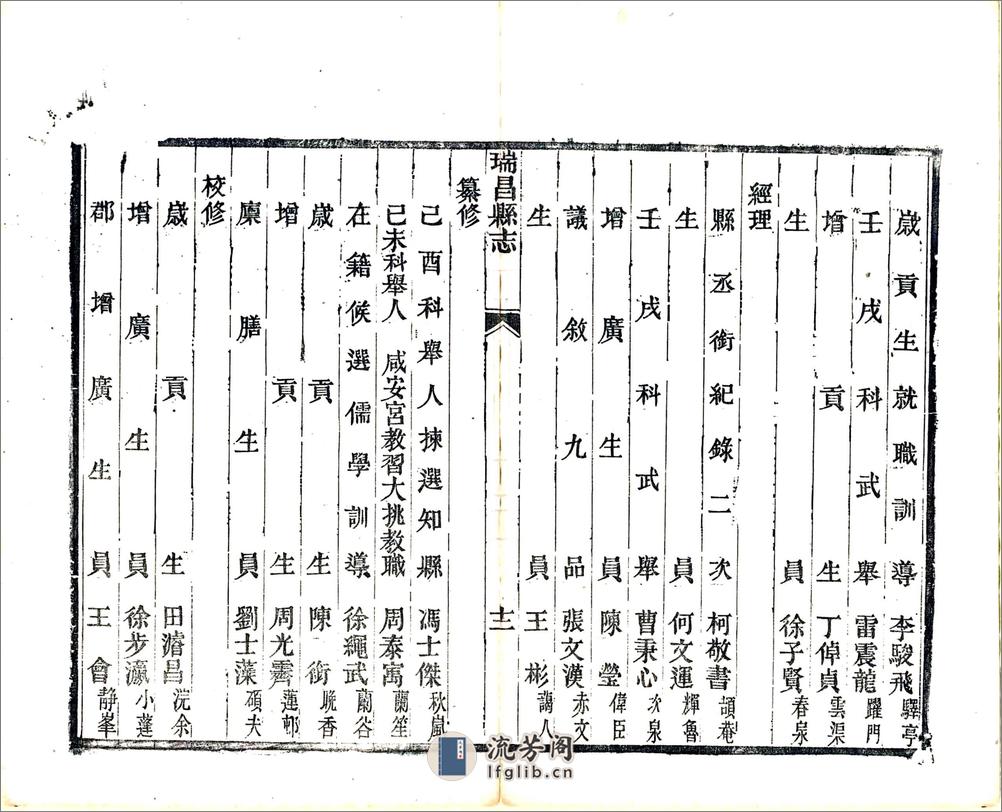 歲貢生就職訓導李駿飛驛亭
壬戌科武舉雷震龍躍門
增貢生丁倬貞雲渠
生員徐子賢春泉
經理
縣丞銜紀錄二次柯敬書頡菴
生員何文運輝魯
壬戌科武舉曹秉心次泉
增廣生員陳瑩偉臣
議敘九品張文漢赤文
生員王彬謁人
瑞昌縣志
十二
纂修
己酉科舉人揀選知縣馮士傑秋嵐
己未科舉人 咸安宮教習大挑教職周泰寓蘭笙
在籍候選儒學訓導徐繩武蘭谷
歲貢生陳銜晚香
增貢生周光霽蓮邨
廩膳生員劉士藻碩夫
校修
歲貢生田濬昌浣余
增廣生員徐步瀛小蓬
郡增廣生員王會靜峯
流芳阁
lfglib.cn